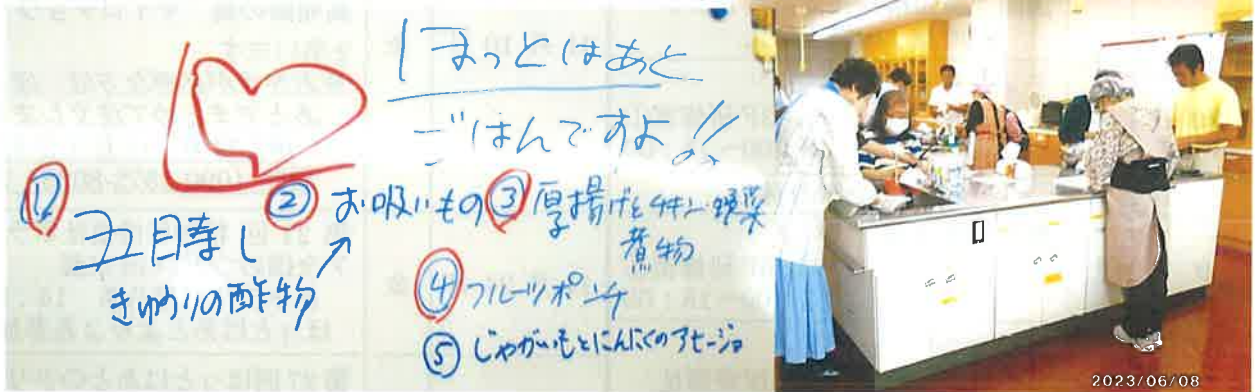 ほっとはあと
ごはんですよ!!
① 五目寿し
きゅうりの酢物
② お吸いもの
③ 厚揚げとチキン野菜
煮物
④ フルーツポンチ
⑤ じゃがいもとにんにくのアヒージョ
2023/06/08